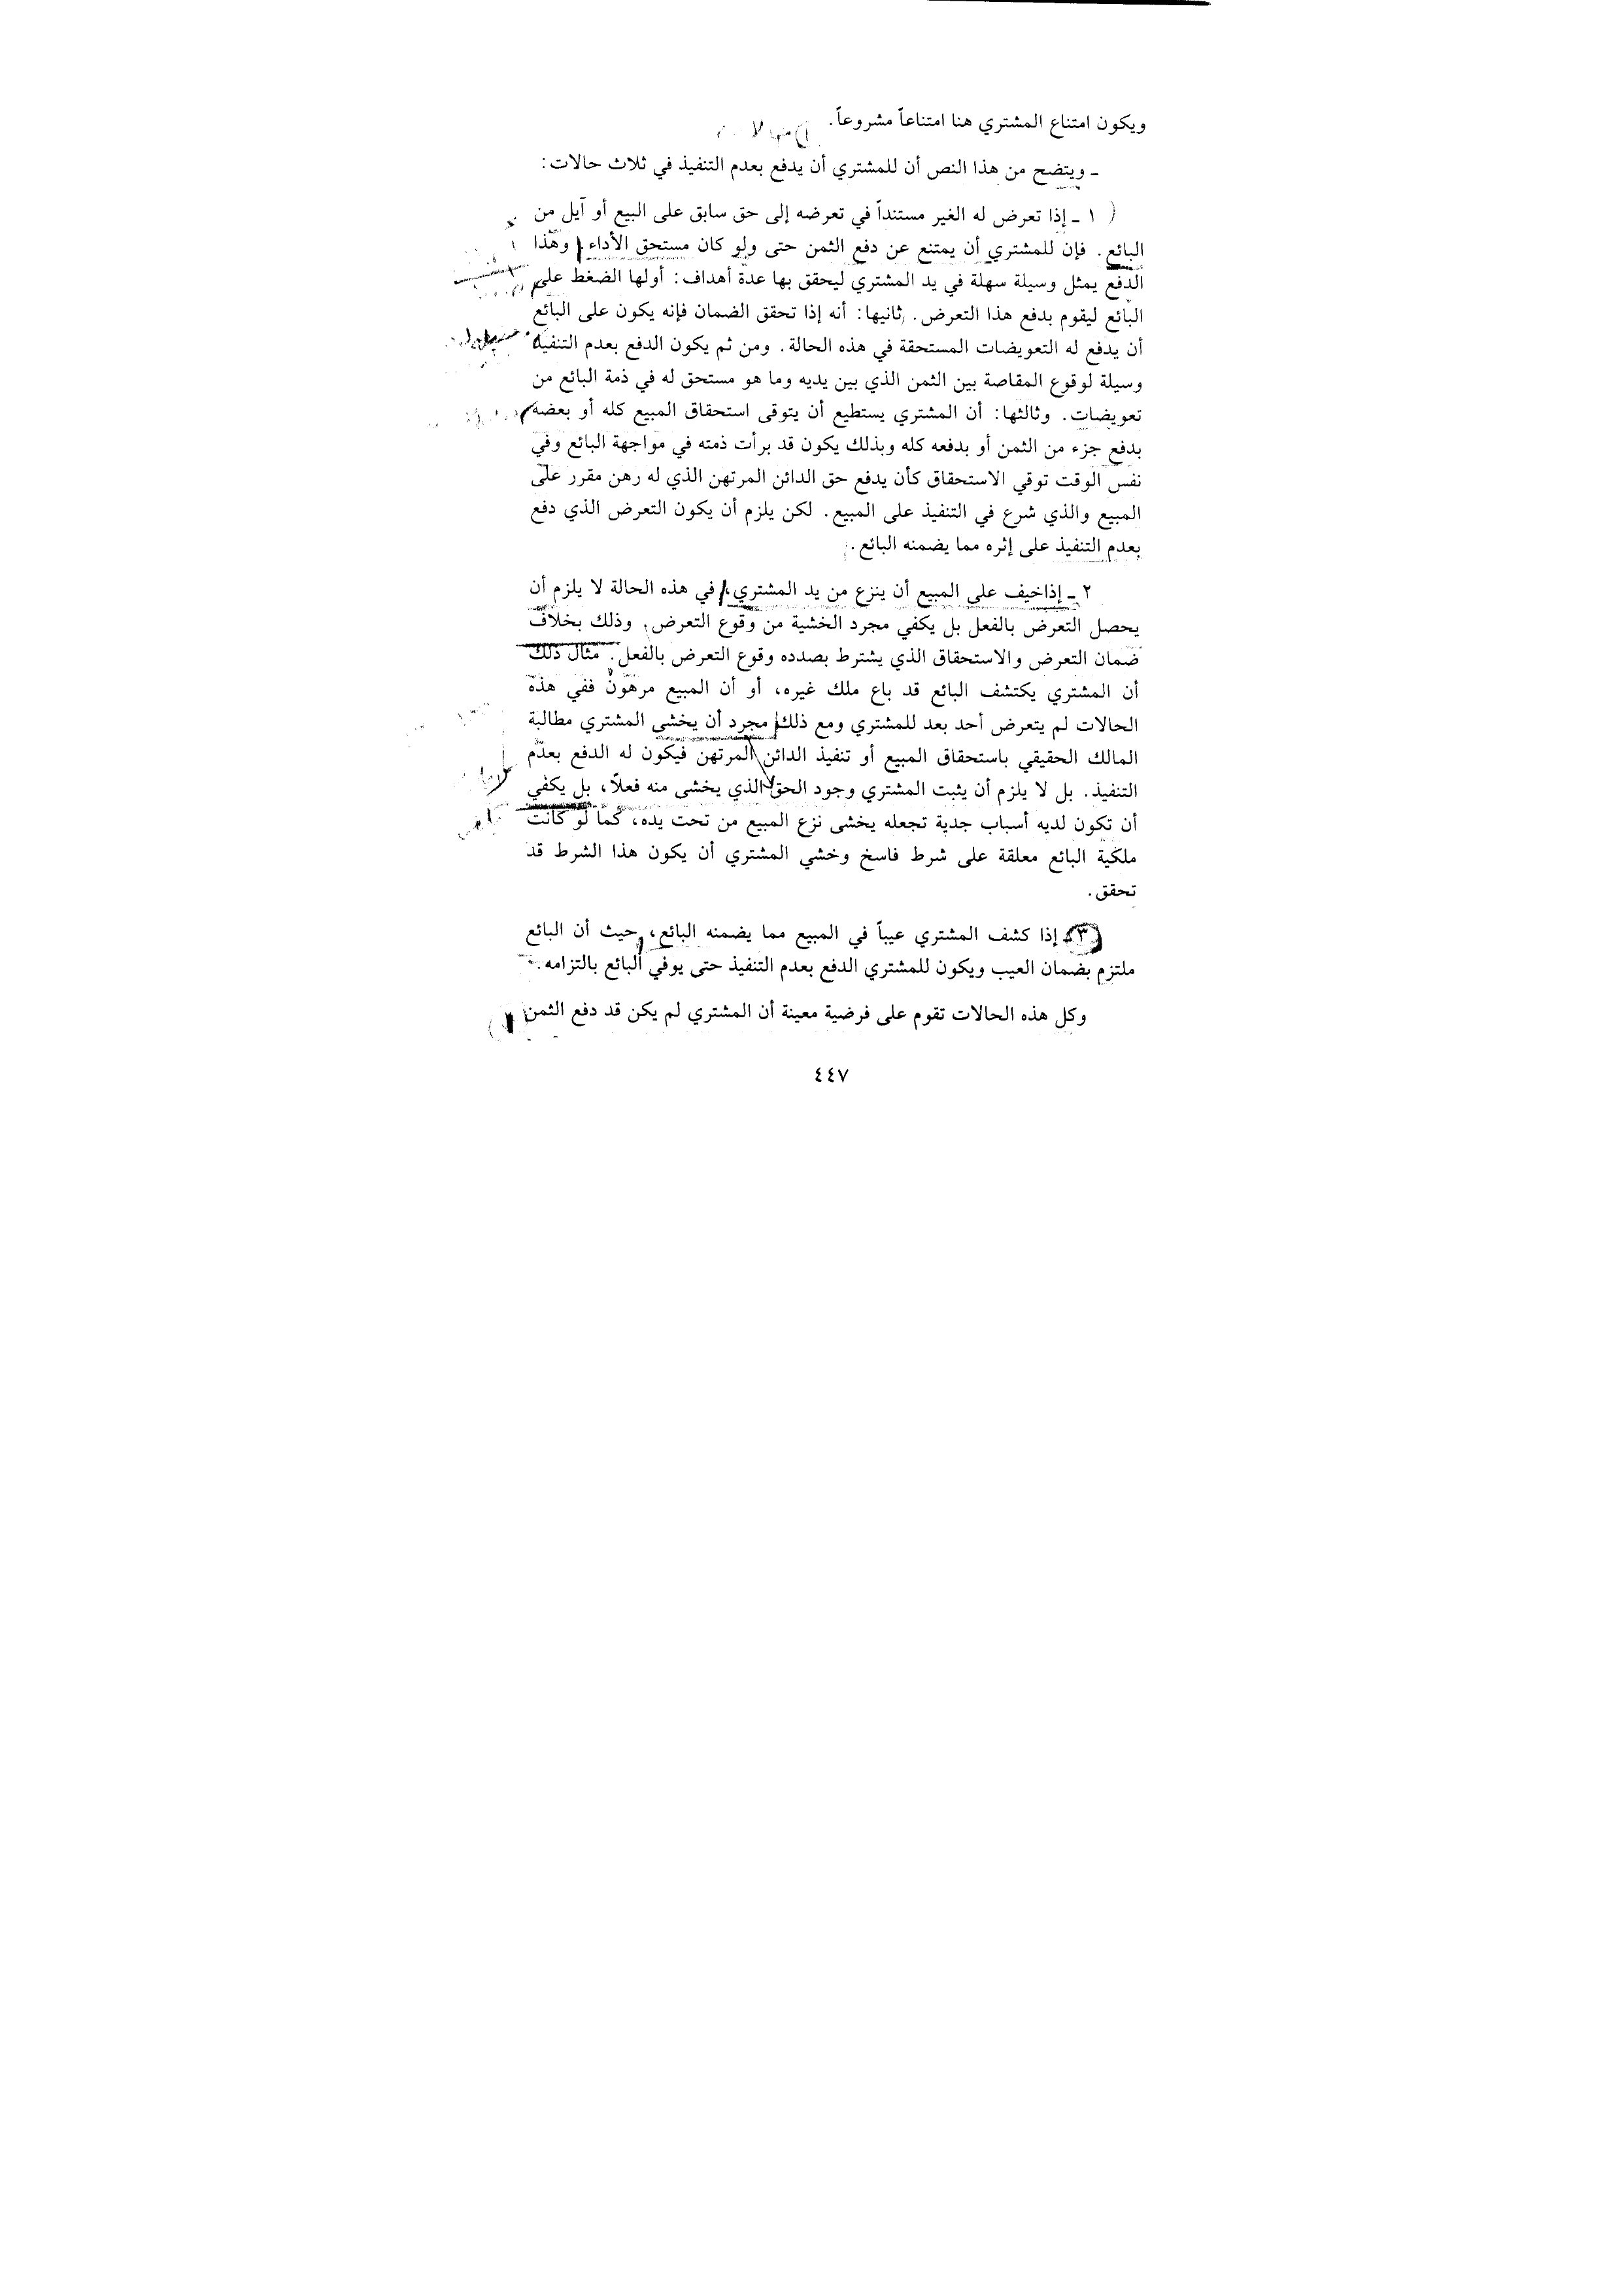 ويكون امتناع المشتري هنا امتناعاً مشروعاً.
ـ ويتضح من هذا النص أن للمشتري أن يدفع بعدم التنفيذ في ثلاث حالات:
١ ـ إذا تعرض له الغير مستنداً في تعرضه إلى حق سابق على البيع أو آيل من
البائع. فإن للمشتري أن يمتنع عن دفع الثمن حتى ولو كان مستحق الأداء. وهذا
الدفع يمثل وسيلة سهلة في يد المشتري ليحقق بها عدة أهداف: أولها الضغط على
البائع ليقوم بدفع هذا التعرض. ثانيها: أنه إذا تحقق الضمان فإنه يكون على البائع
أن يدفع له التعويضات المستحقة في هذه الحالة. ومن ثم يكون الدفع بعدم التنفيذ
وسيلة لوقوع المقاصة بين الثمن الذي بين يديه وما هو مستحق له في ذمة البائع من
تعويضات. وثالثها: أن المشتري يستطيع أن يتوقى استحقاق المبيع كله أو بعضه
بدفع جزء من الثمن أو بدفعه كله وبذلك يكون قد برأت ذمته في مواجهة البائع وفي
نفس الوقت توقي الاستحقاق كأن يدفع حق الدائن المرتهن الذي له رهن مقرر على
المبيع والذي شرع في التنفيذ على المبيع. لكن يلزم أن يكون التعرض الذي دفع
بعدم التنفيذ على إثره مما يضمنه البائع.
٢ ـ إذاخيف على المبيع أن ينزع من يد المشتري، في هذه الحالة لا يلزم أن
يحصل التعرض بالفعل بل يكفي مجرد الخشية من وقوع التعرض. وذلك بخلاف
ضمان التعرض والاستحقاق الذي يشترط بصدده وقوع التعرض بالفعل. مثال ذلك
أن المشتري يكتشف البائع قد باع ملك غيره، أو أن المبيع مرهون ففي هذه
الحالات لم يتعرض أحد بعد للمشتري ومع ذلك مجرد أن يخشى المشتري مطالبة
المالك الحقيقي باستحقاق المبيع أو تنفيذ الدائن المرتهن فيكون له الدفع بعدم
التنفيذ. بل لا يلزم أن يثبت المشتري وجود الحق الذي يخشى منه فعلاً، بل يكفي
أن تكون لديه أسباب جدية تجعله يخشى نزع المبيع من تحت يده، كما لو كانت
ملكية البائع معلقة على شرط فاسخ وخشي المشتري أن يكون هذا الشرط قد
تحقق.
٣ ـ إذا كشف المشتري عيباً في المبيع مما يضمنه البائع، حيث أن البائع
ملتزم بضمان العيب ويكون للمشتري الدفع بعدم التنفيذ حتى يوفي البائع بالتزامه.
وكل هذه الحالات تقوم على فرضية معينة أن المشتري لم يكن قد دفع الثمن
٤٤٧